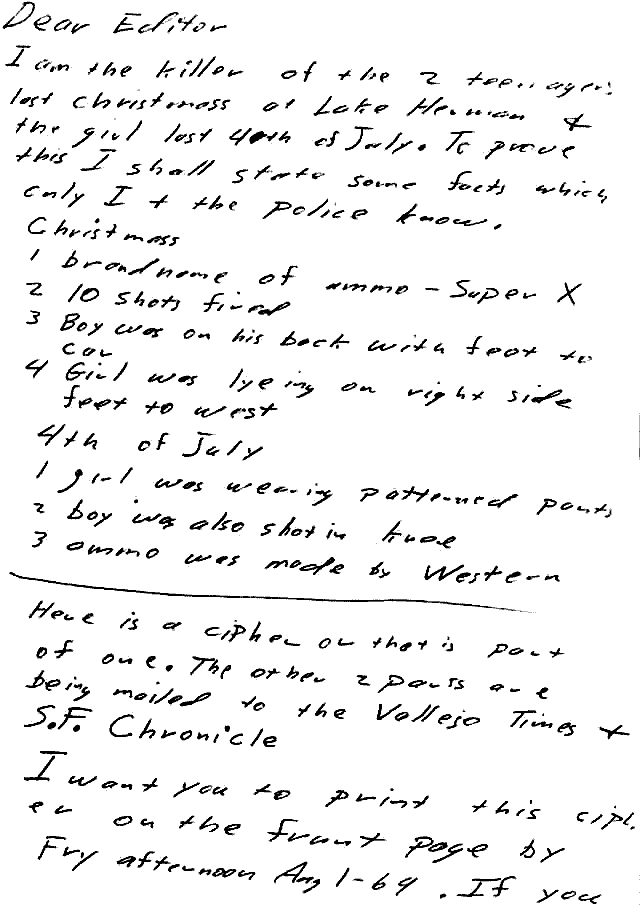 Dear Editor
I am the killer of the 2 teenagers
last christmass at Lake Herman &
the girl last 4th of July. To prove
this I shall state some facts which
only I + the police know.
Christmass
1 brand name of ammo - Super X
2 10 shots fired
3 Boy was on his back with feet to
car
4 Girl was lyeing on right side
feet to west
4th of July
1 girl was wearing patterned pants
2 boy was also shot in knee
3 ammo was made by Western
Here is a cipher or that is part
of one. The other 2 parts are
being mailed to the Vallejo Times +
S.F. Chronicle
I want you to print this ciph
er on the front page by
Fry afternoon Aug 1-69. If you